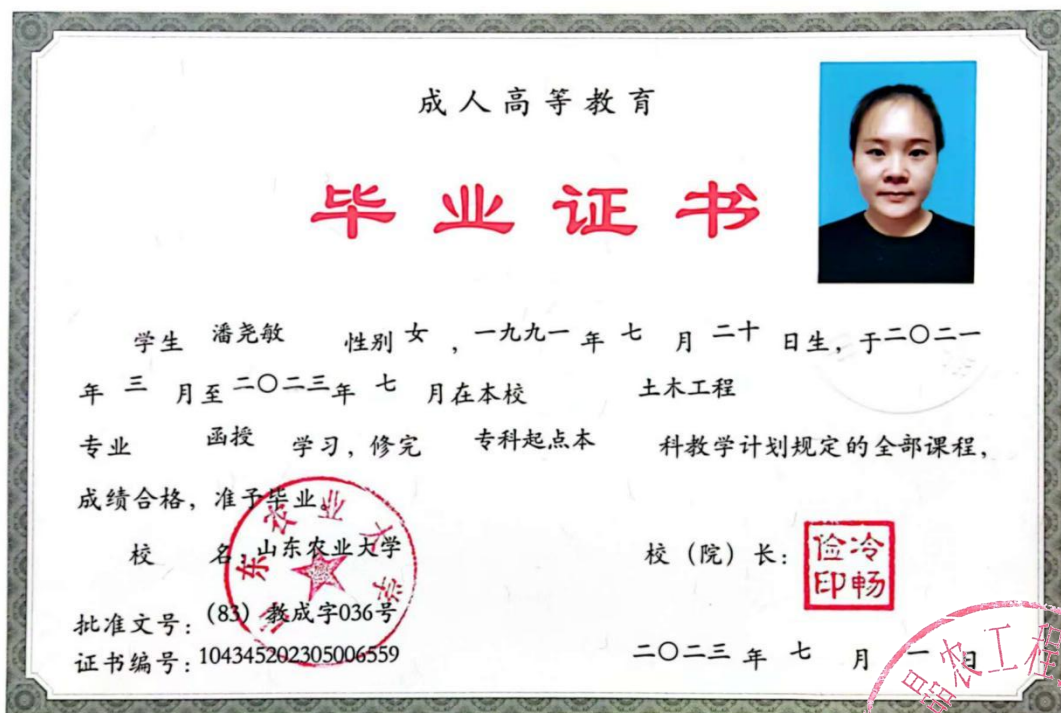 成人高等教育
毕业证书
学生 潘尧敏 性别 女 ，一九九一 年 七 月 二十 日生，于二〇二一
年 三 月至 二〇二三年 七 月在本校 土木工程
专业 函授 学习，修完 专科起点本 科教学计划规定的全部课程，
成绩合格，准予毕业。
校 名：山东农业大学
校（院）长：
冷畅俭印
批准文号：(83) 教成字036号
证书编号：104345202305006559
二〇二三 年 七 月 一 日
山东农业大学
农工程